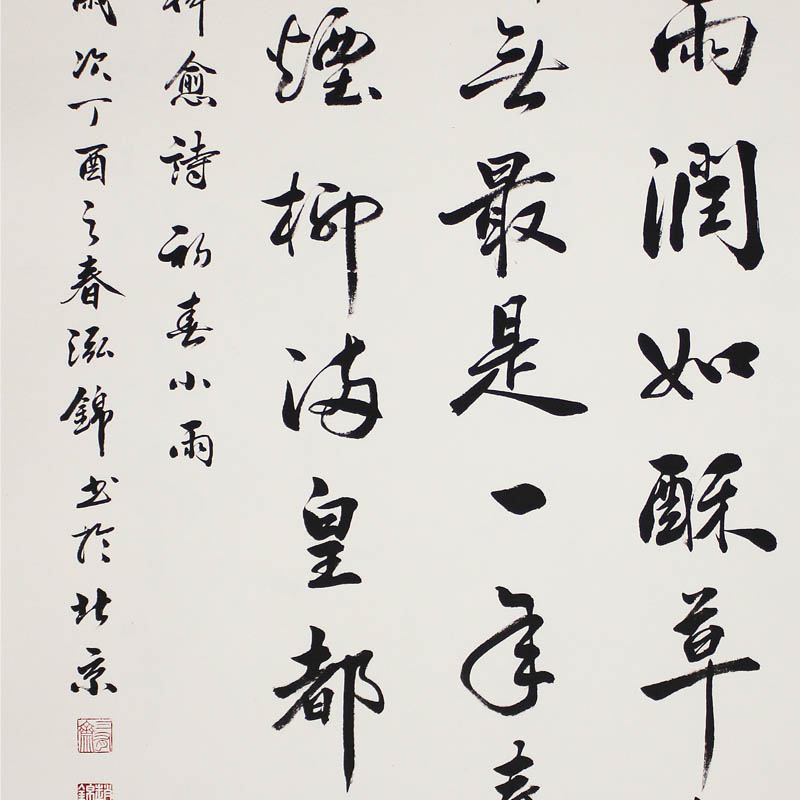 雨潤如酥草
無最是一年春
煙柳滿皇都
韓愈詩初春小雨
歲次丁酉之春泓錦书於北京